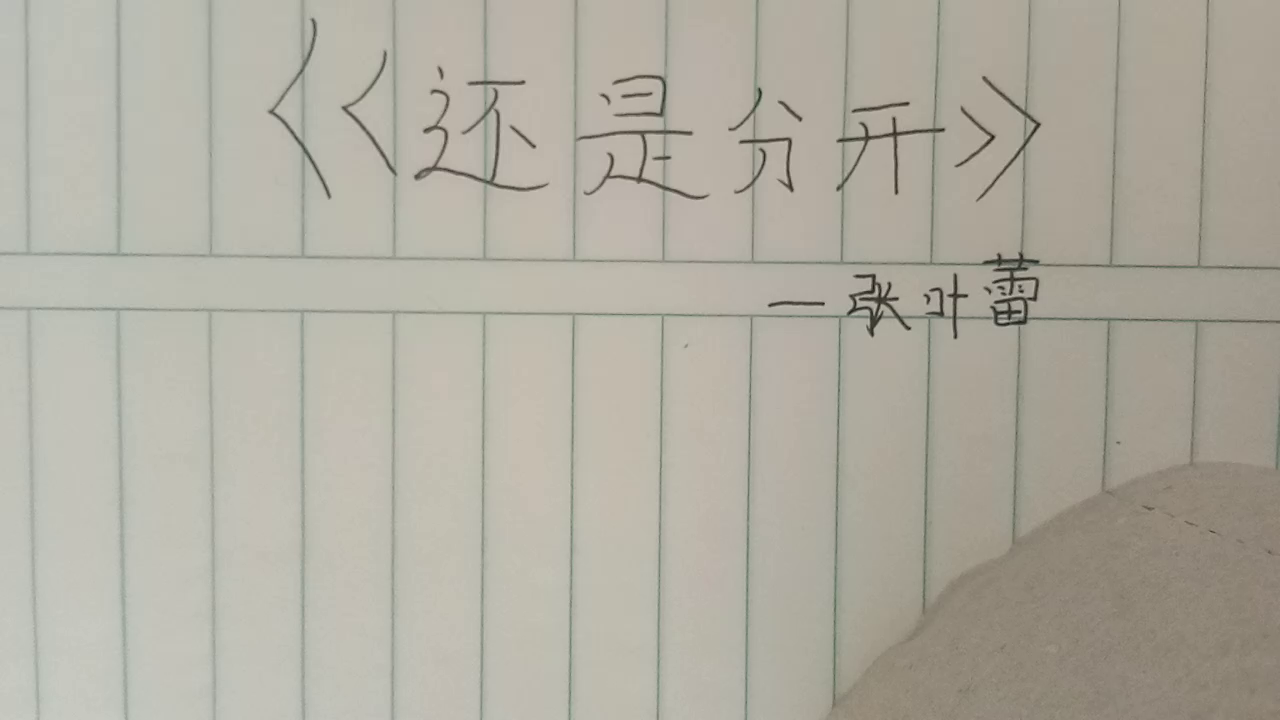 《还是分开》
一张叶蕾